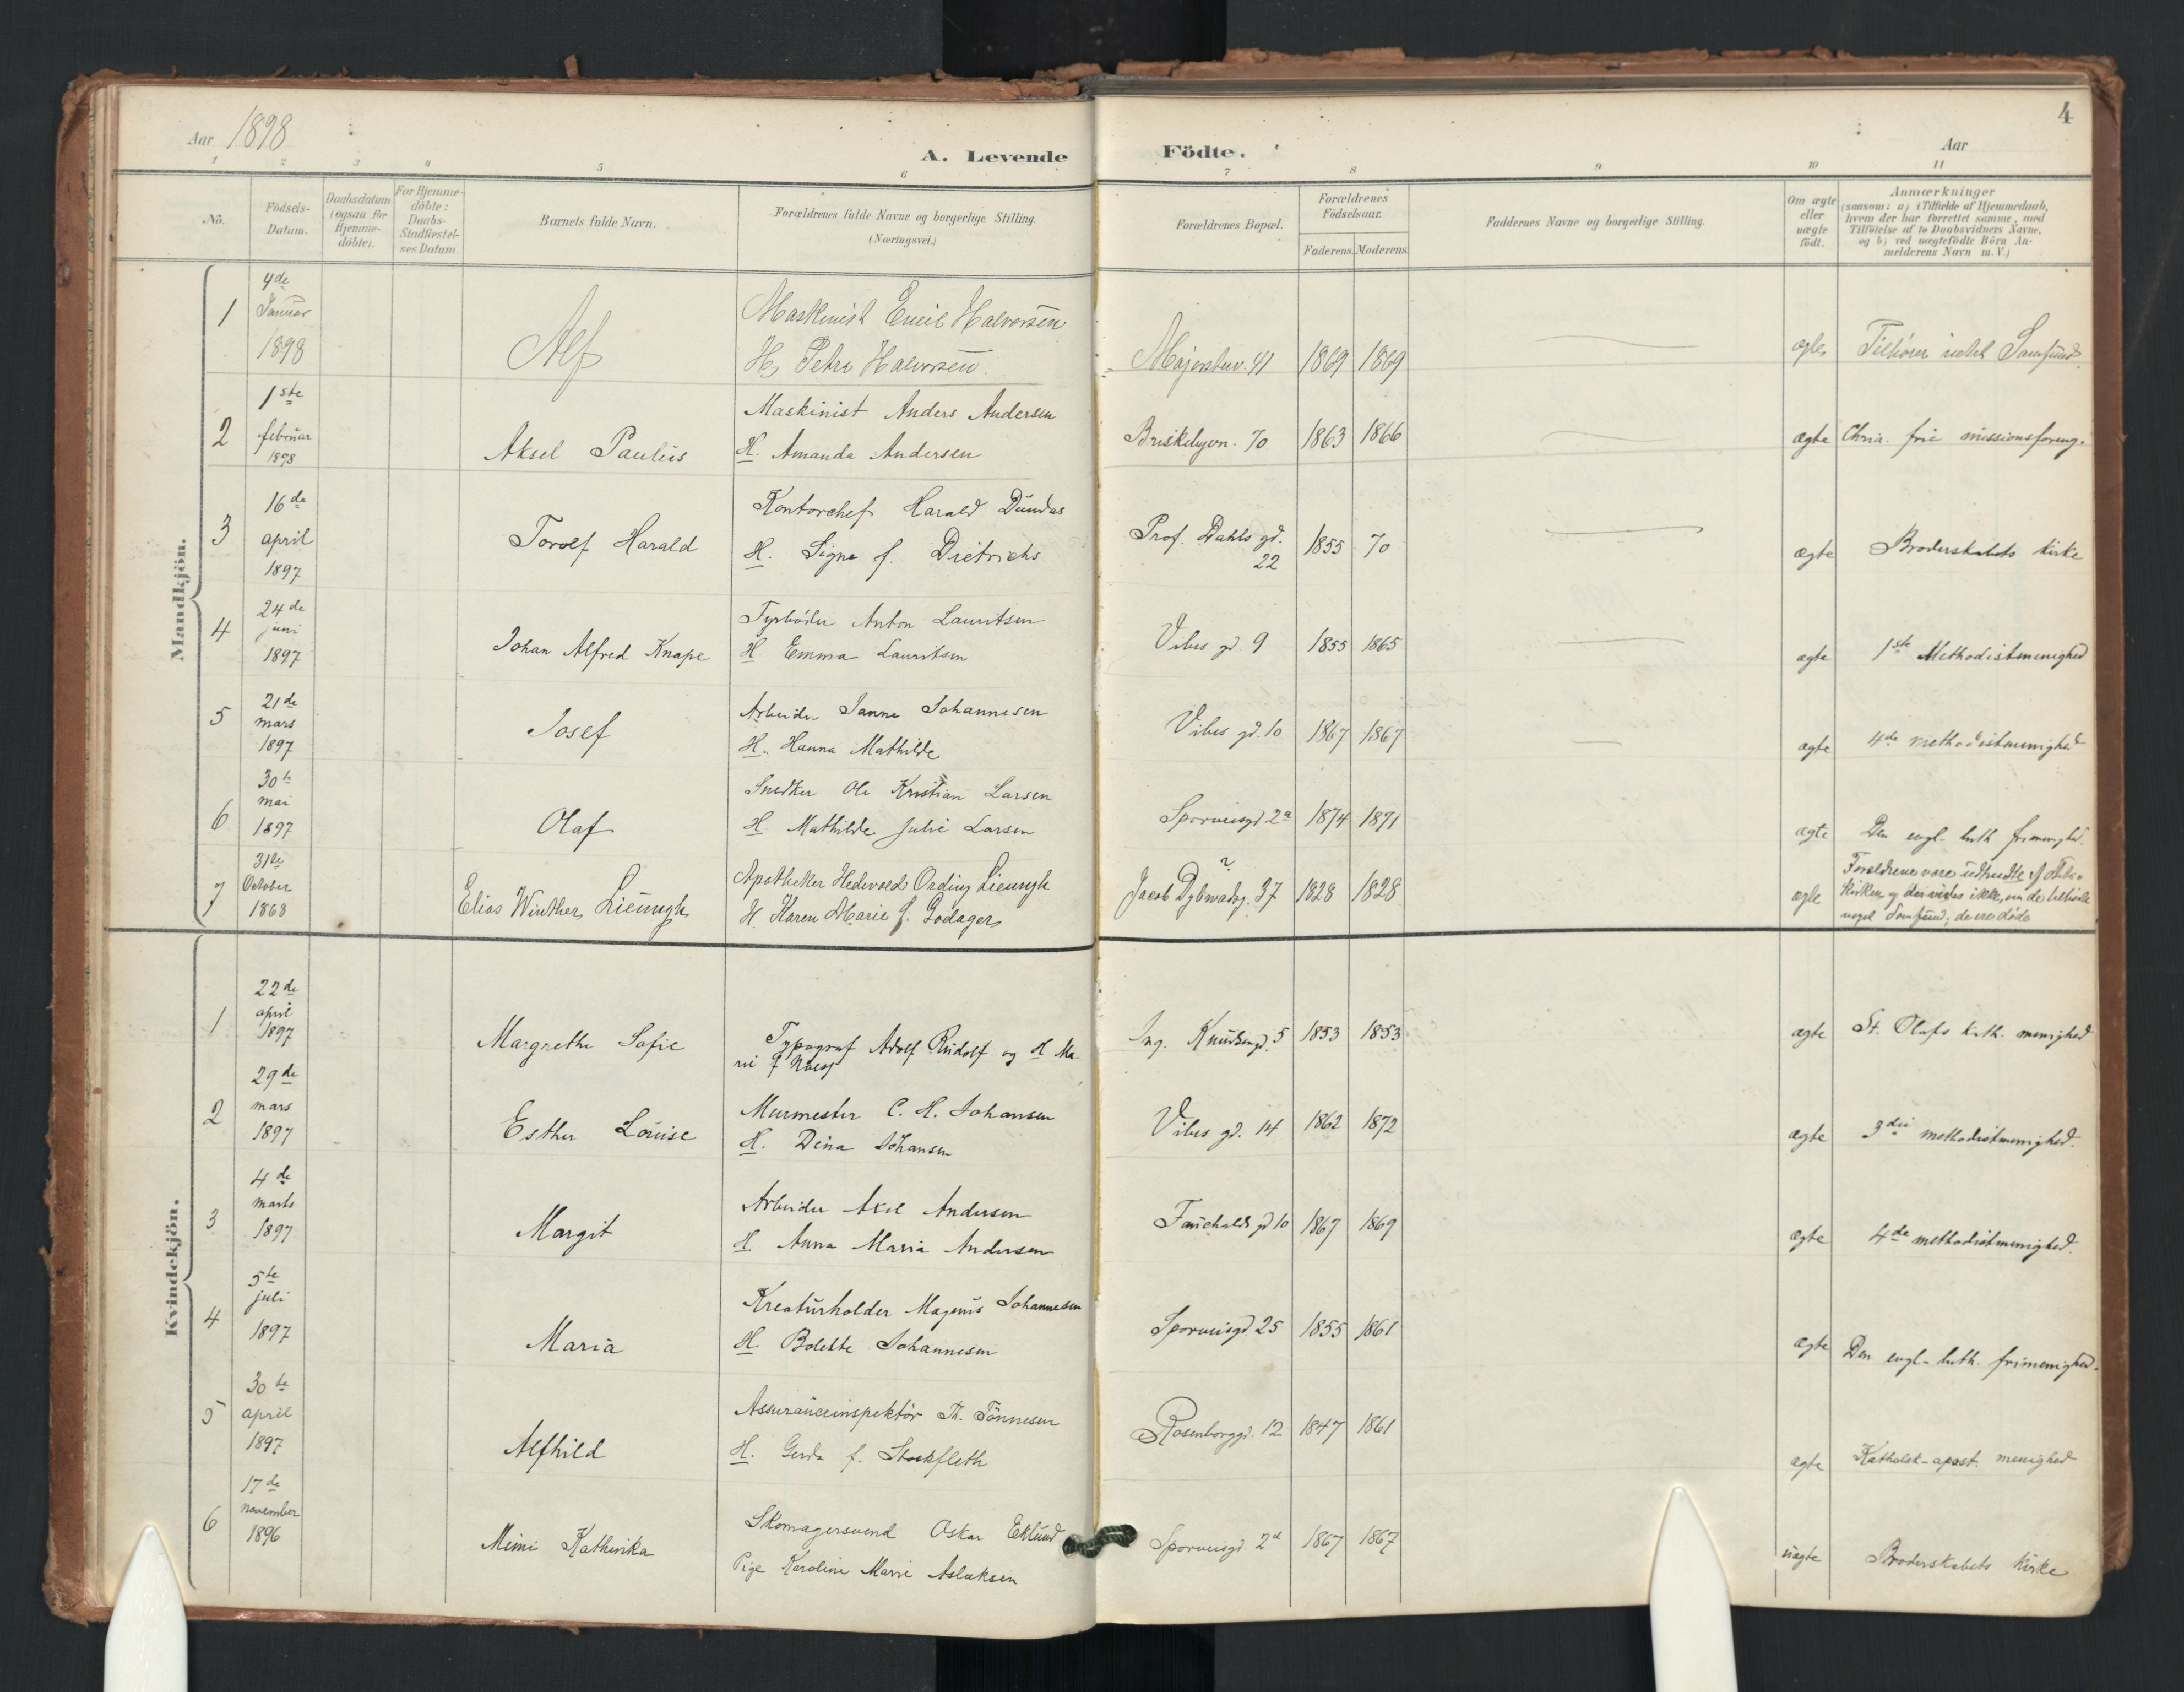 4
Aar 1898
A. Levende Födte.
Aar
1 2 3 4 5 6 7 8 9 10 11
No.
Födsels-Datum.
Daabsdatum (ogsaa for Hjemme-döbte).
For Hjemme-döbte: Daabs-Stadfæstel-ses Datum.
Barnets fulde Navn.
Forældrenes fulde Navne og borgerlige Stilling. (Næringsvei.)
Forældrenes Bopæl.
Forældrenes Födselsaar.
Faderens. Moderens.
Faddernes Navne og borgerlige Stilling.
Om ægte eller uægte födt.
Anmærkninger
(saasom: a) i Tilfælde af Hjemmedaab,
hvem der har forrettet samme, med
Tilföielse af to Daabsvidners Navne.
og b) ved uægtefödte Börn An-
melderens Navn m. V.)
Mandkjön.
1 4de Januar 1898 Alf
Maskinist Emil Halvorsen
H. Petra Halvorsen
Majorstuv. 41 1869 1869 ægte Tilhører intet Samfund.
2 1ste februar 1898 Aksel Paulus
Maskinist Anders Andersen
H. Amanda Andersen
Briskebyvn. 70 1863 1866 ægte Chria. frie missionsforeng.
3 16de april 1897 Torolf Harald
Kontorchef Harald Dundas
H. Signe f. Dietrichs
Prof. Dahls gd. 22 1855 70 ægte Broderskabets Kirke
4 24de juni 1897 Johan Alfred Knape
Fyrbøder Anton Lauritsen
H. Emma Lauritsen
Vibes gd. 9 1855 1865 ægte 1ste Methodistmenighed
5 21de mars 1897 Josef
Arbeider Janne Johannesen
H. Hanna Mathilde
Vibes gd. 10 1867 1867 ægte 4de methodistmenighed
6 30te mai 1897 Olaf
Snedker Ole Kristian Larsen
H. Mathilde Julie Larsen
Sporveisgd 2a 1874 1871 ægte Den evgl- luth frimenighed.
7 31te October 1868 Elias Winther Lieungh
Apotheker Hedevold Ording Lieungh
H Karen Marie f. Godager
Jacob Dybwadsg. 37 1828 1828 ægte
Forældrene vare udtraadte af Stats-
kirken og der vides ikke, om de tilhørte
noget Samfund; de ere døde
Kvindekjön.
1 22de april 1897 Margrethe Sofie
Typograf Adolf Rudolf og H Ma-
rie f
Ing. Knudsengd. 5 1853 1853 ægte St. Olafs kath. menighed
2 29de mars 1897 Esther Louise
Murmester C. H. Johansen
H. Dina Johansen
Vibes gd. 14 1862 1872 ægte 3die methodistmenighed.
3 4de marts 1897 Margit
Arbeider Axel Andersen
H. Anna Maria Andersen
Fauchalds gd 10 1867 1869 ægte 4de methodistmenighed.
4 5te juli 1897 Maria
Kreaturholder Magnus Johannesen
H. Bolette Johannesen
Sporveisgd. 25 1855 1861 ægte Den evgl- luth. frimenighed.
5 30te april 1897 Alfhild
Assuranceinspektör Th. Tönnesen
H. Gerda f. Stockfleth
Rosenborggd. 12 1847 1861 ægte Katholsk-apost. menighed
6 17de november 1896 Mimi Kathinka
Skomagersvend Oskar Eklund
Pige Karoline Marie Aslaksen
Sporveisgd. 2d 1867 1867 uægte Broderskabets Kirke